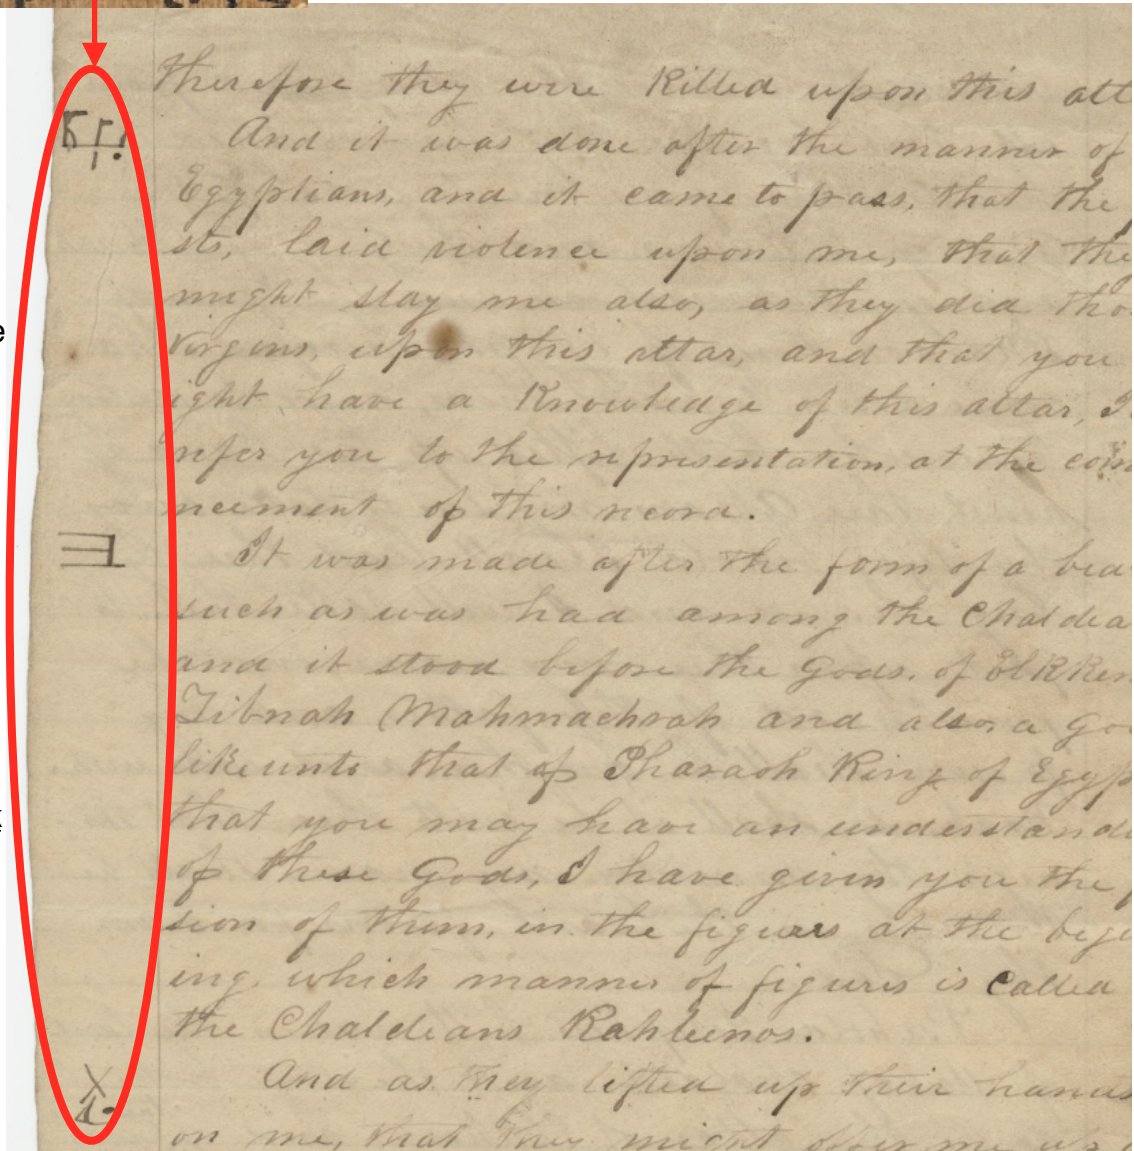 Therefore they were Killed upon this alt
And it was done after the manner of
Egyptians, and it came to pass, that the p
sts, laid violence upon me, that the
might slay me also, as they did tho
virgins, upon this altar, and that you
ight have a Knowledge of this altar, I
refer you to the representation, at the com
ncement of this record.
It was made after the form of a bed
such as was had among the Chaldea
and it stood before the Gods, of Elkken
Zibnah Mahmachrah and also a Go
like unto that of Pharaoh King of Egyp
that you may have an understand
of these Gods, I have given you the f
sion of them, in the figures at the begi
ing, which manner of figures is Called
the Chaldeans Kahleenos.
And as they lifted up their hands
on me, that they might offer me up